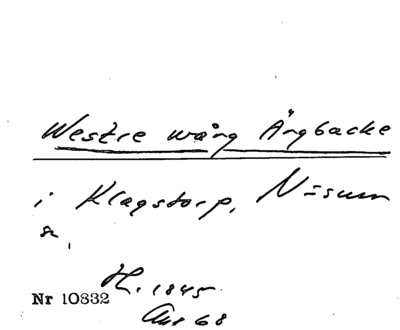 Westre wång Ängbacke
i Klagstorp, Näsum
sn,
H. 1845.
Nr 10832
Akt 68